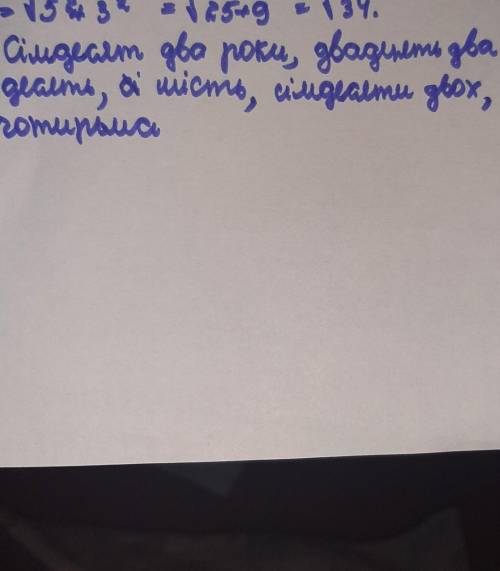 = √5² + 3² = √25+9 = √34.
Сімдесят два роки, двадцять два
десять, і шість, сімдесяти двох,
чотирьма